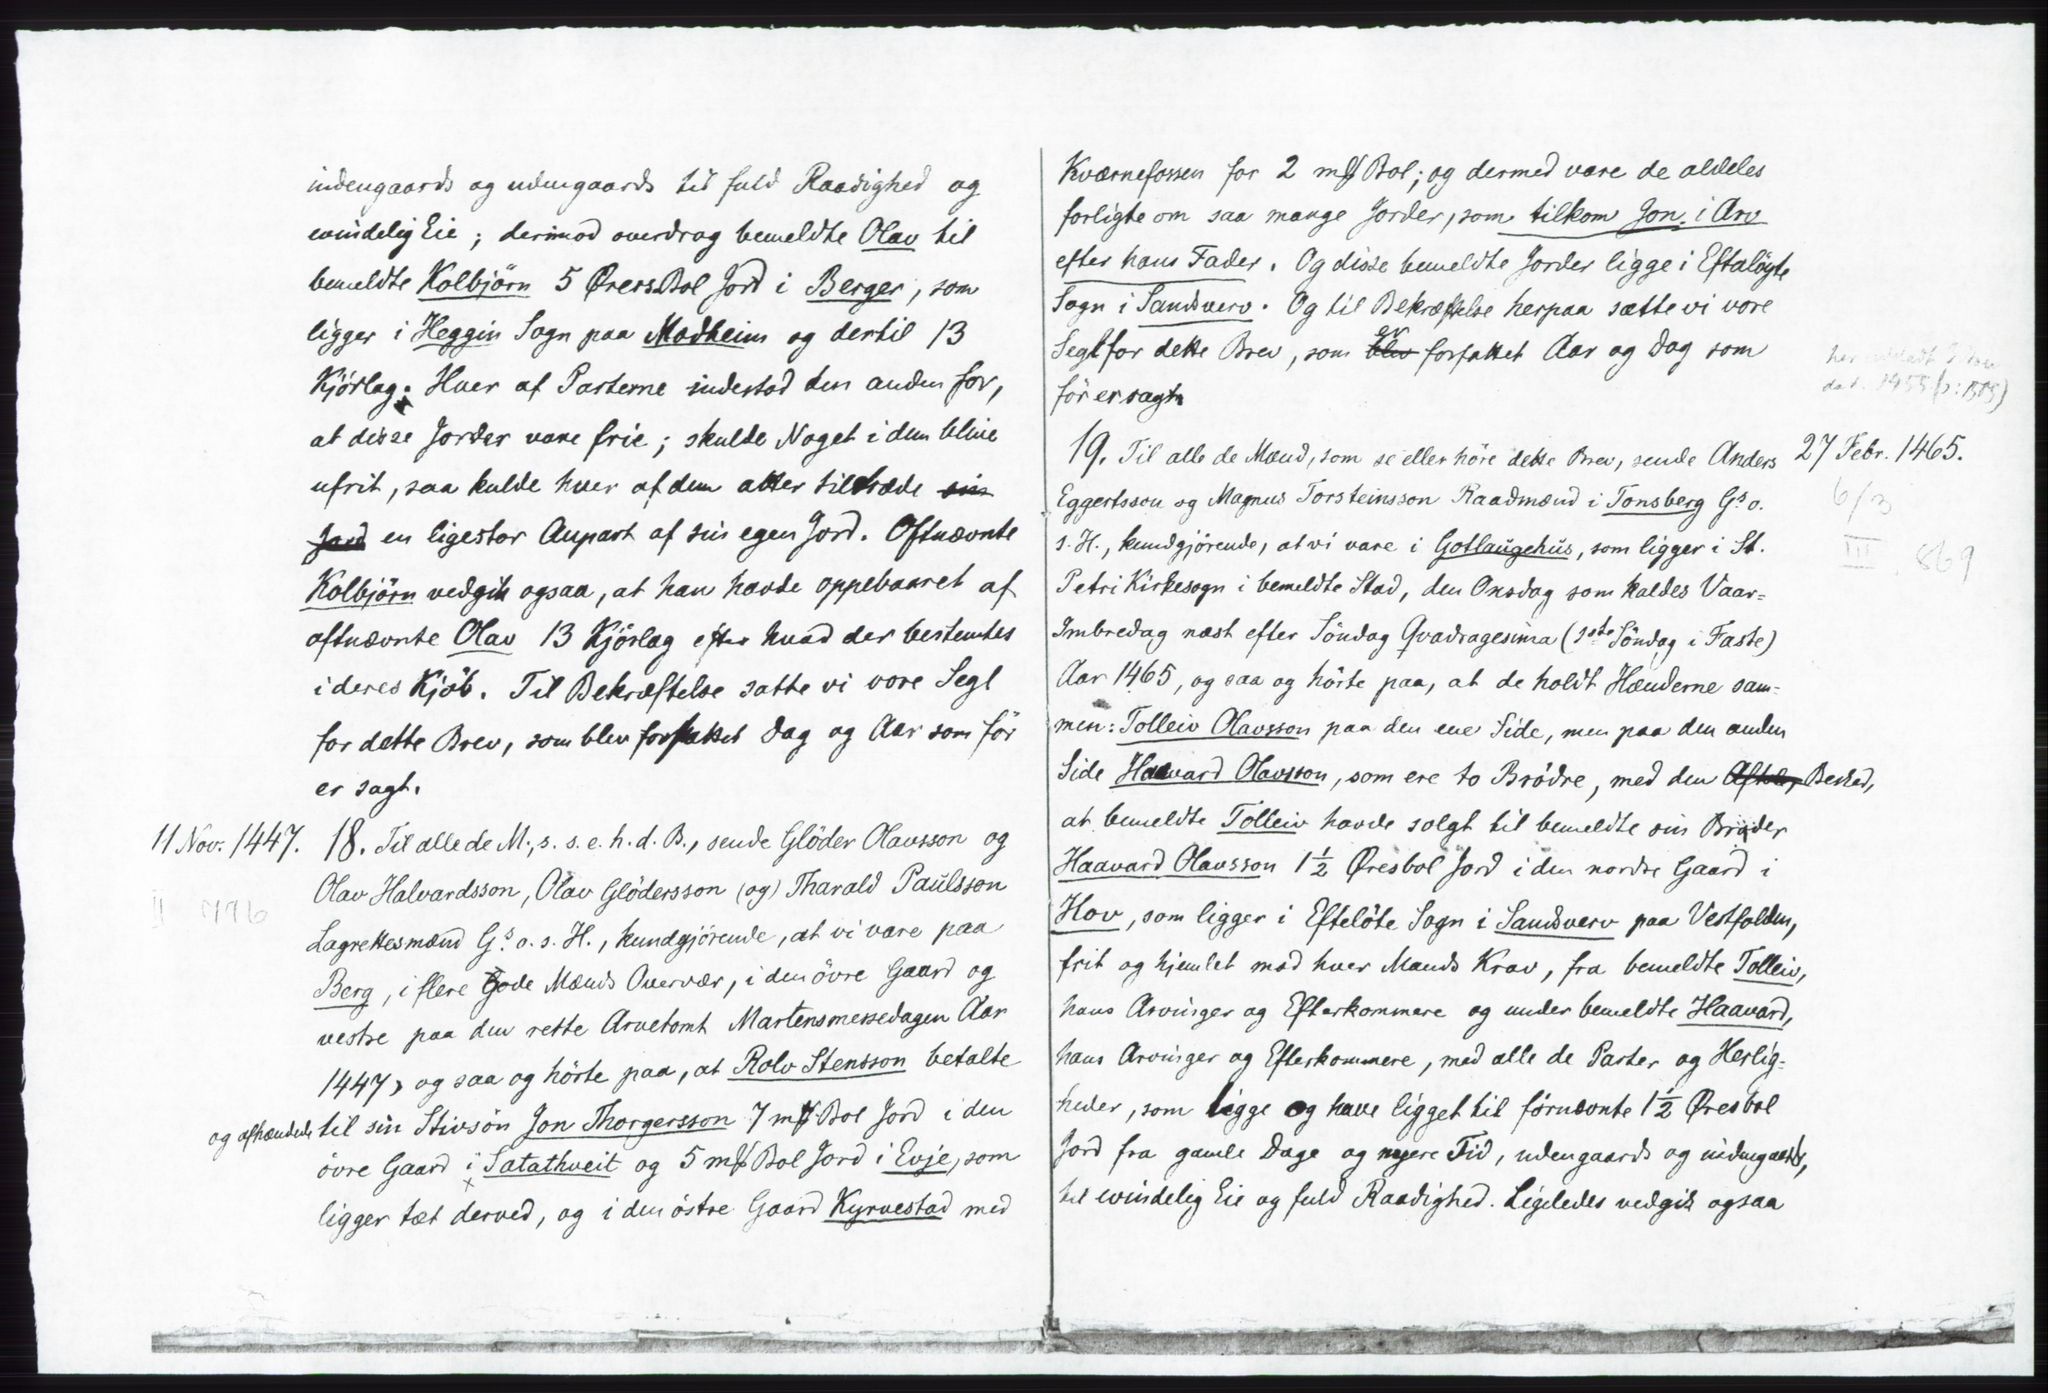 indengaards og udengaards til fuld Raadighed og
evindelig Eie; derimod overdrog bemeldte Olav til
bemeldte Kolbjörn 5 ØrersBol Jord i Berger, som
ligger i Heggin Sogn paa Modheim og dertil 13
Kjörlag. Hver af Parterne indestod den anden for,
at disse Jorder vare frie; skulde Noget i dem blive
ufrit, saa kulde hver af dem atter tiltræde sin
Jord en ligestor Anpart af sin egen Jord. Oftnævnte
Kolbjörn vedgik ogsaa, at han havde oppebaaret af
oftnævnte Olav 13 Kjörlag efter hvad der bestemtes
i deres Kjöb. Til Bekræftelse satte vi vore Segl
for dette Brev, som blev forfattet Dag og Aar som för
er sagt.
11 Nov. 1447. 18. Til alle de M., s. s. e. h. d. B., sende Glöder Olavsson og
II 796
Olav Halvardsson, Olav Glödersson (og) Tharald Paulsson
Lagrettesmænd Gs. o. s. H., kundgjörende, at vi vare paa
Berg, i flere Gode Mænds Overvær, i den övre Gaard og
vestre paa den rette Arvetomt Martensmessedagen Aar
1447, og saa og hörte paa, at Rolv Stensson betalte
og afhændede til sin Stivsön Jon Thorgersson 7 mß Bol Jord i den
övre Gaard i Satathveit og 5 mß Bol Jord i Evje, som
ligger tæt derved, og i den östre Gaard Kyrvestad med
Kværnefossen for 2 mß Bol; og dermed vare de aldeles
forligte om saa mange Jorder, som tilkom Jon i Arv
efter hans Fader. Og disse bemeldte Jorder ligge i Eftalöyte
Sogn i Sandsverv. Og til Bekræftelse herpaa sætte vi vore
Segl for dette Brev, som blev er forfattet Aar og Dag som
för er sagt.
dat. 1455 (ɔ: 1505)
19. Til alle de Mænd, som se eller höre dette Brev, sende Anders 27 Febr. 1465.
6/3
III. 869
Eggertsson og Magnus Torsteinsson Raadmænd i Tonsberg Gs. o.
s. H., kundgjörende, at vi vare i Gotlaugehus, som ligger i St.
Petri Kirkesogn i bemeldte Stad, den Onsdag som kaldes Vaar=
Imbredag næst efter Söndag Qvadragesima (1ste Söndag i Faste)
Aar 1465, og saa og hörte paa, at de holdt Hænderne sam=
men: Tolleiv Olavsson paa den ene Side, men paa den anden
Side Haavard Olavsson, som ere to Brödre, med den Aftale, Besked,
at bemeldte Tolleiv havde solgt til bemeldte sin Broder
Haavard Olavsson 1½ Øresbol Jord i den nordre Gaard i
Hov, som ligger i Eftelöte Sogn i Sandsverv paa Vestfolden,
frit og hjemlet mod hver Mands Krav, fra bemeldte Tolleiv,
hans Arvinger og Efterkommere og under bemeldte Haavard,
hans Arvinger og Efterkommere, med alle de Parter og Herlig=
heder, som ligge og have ligget til förnævnte 1½ Øresbol
Jord fra gamle Dage og nyere Tid, udengaards og indengaards,
til evindelig Eie og fuld Raadighed. Ligeledes vedgik ogsaa